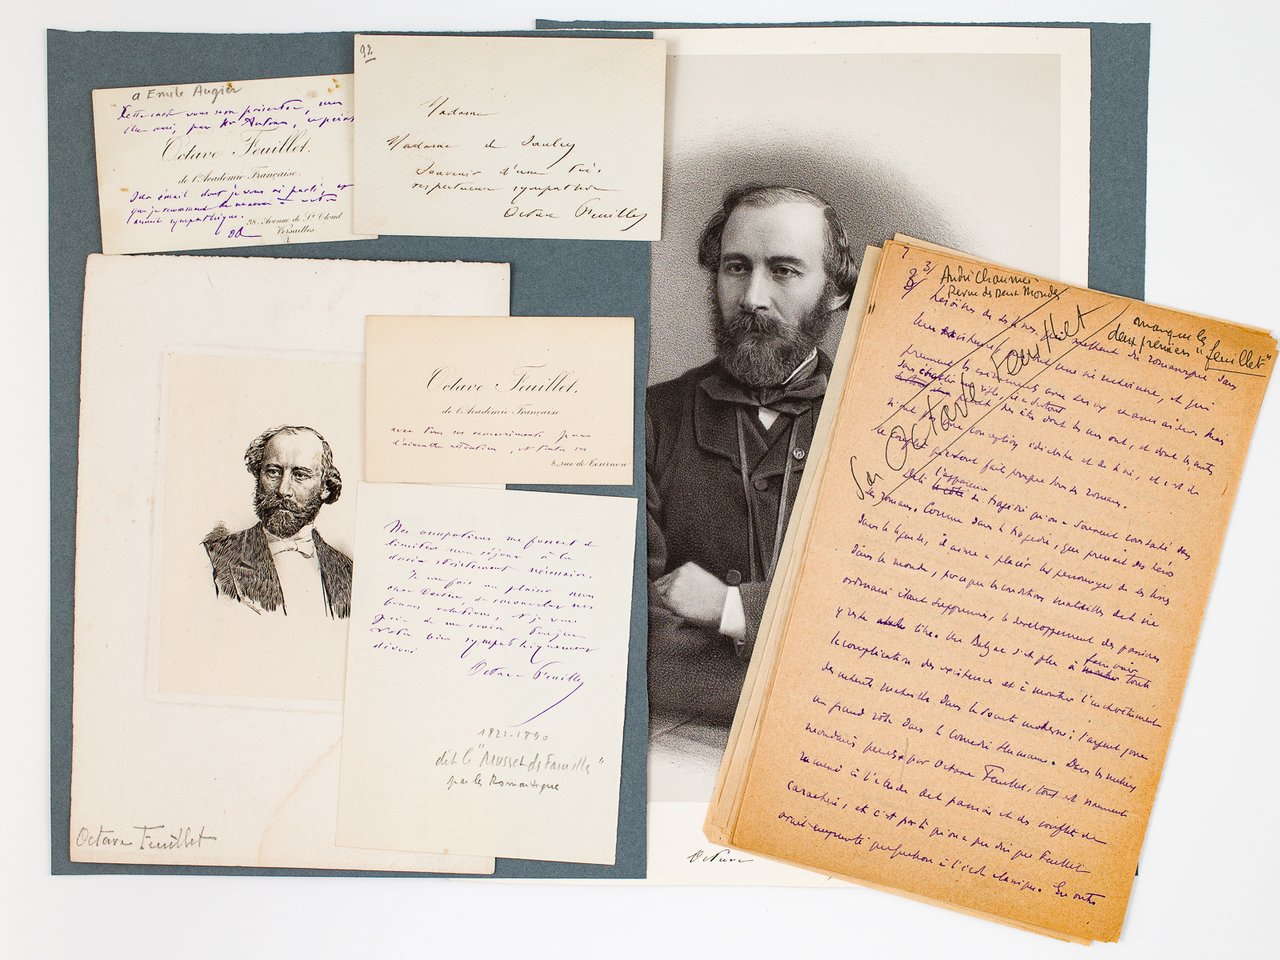 a Emile Augier
Cette carte vous sera présentée, mon
cher ami, par Mr Autran,
Octave Feuillet.
de l'Académie Française.
dont je vous ai parlé, et
que je recommande
amitié sympathique.
38, Avenue de St Cloud
Versailles
92
Madame
Madame de Saulcy
Souvenir d'une très
respectueuse sympathie
Octave Feuillet
Octave Feuillet.
de l'Académie Française
avec tous ses remerciements pour
l'aimable attention, et toutes ses
8, rue de Tournon
Mes occupations me forcent de
limiter mon séjour à la
durée strictement nécessaire.
Je me fais un plaisir mon
cher Docteur, de renouveler nos
bonnes relations et je vous
prie de me croire toujours
votre bien sympathiquement
dévoué
Octave Feuillet
1821-1890
dit le "Musset des Familles"
par les Romantiques
Octave Feuillet
Octave
7. 3/
8/
André Chaumeix
Revue des Deux Mondes
manque les
deux premiers "feuillets"
Sur Octave Feuillet
du romanesque dans
une vie intérieure, et qui
prennent les événements
des êtres dont les uns ont, et dont les autres
n'ont pas une conception idéaliste de la vie, et c'est de
ce conflit que sont faits presque tous ses romans.
De là l'apparence de tragédie qu'on a souvent constaté dans
ses romans. Comme dans la tragédie, qui prenait ses héros
dans la légende, il aime à placer les personnages de ses livres
dans le monde, parce que les conditions matérielles de la vie
ordinaire étant supprimées, le développement des passions
y reste libre. Un Balzac s'est plu à faire voir toute
la complication des existences et à montrer l'enchevêtrement
des intérêts matériels dans la société moderne; l'argent joue
un grand rôle dans la Comédie Humaine. Dans les milieux
mondains peints par Octave Feuillet, tout est vraiment
ramené à l'étude des passions et des conflits de
caractère, et c'est par là qu'on a pu dire que Feuillet
avait emprunté quelque chose à l'école classique. En outre